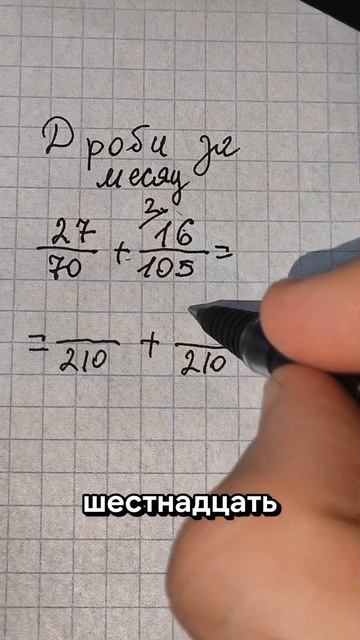 Дроби за
месяц
2
27/70 + 16/105 =
= /210 + /210
шестнадцать